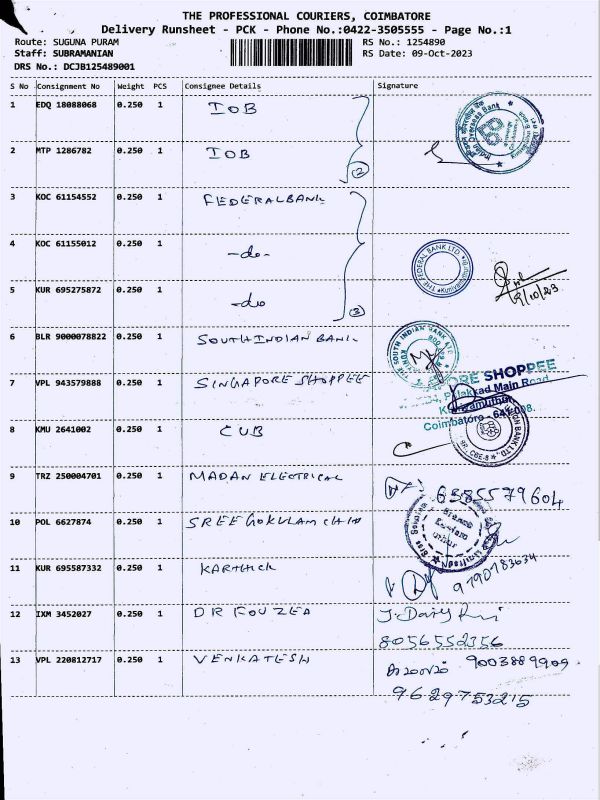 THE PROFESSIONAL COURIERS, COIMBATORE
Delivery Runsheet - PCK - Phone No.:0422-3505555 - Page No.:1
Route: SUGUNA PURAM RS No.: 1254890
Staff: SUBRAMANIAN RS Date: 09-Oct-2023
DRS No.: DCJB125489001
S No Consignment No Weight PCS Consignee Details Signature
1 EDQ 18088068 0.250 1 IOB
Indian Overseas Bank
2 MTP 1286782 0.250 1 IOB
(2)
3 KOC 61154552 0.250 1 FEDERAL BANK
4 KOC 61155012 0.250 1 -do-
THE FEDERAL BANK LTD
5 KUR 695275872 0.250 1 -do
(3) 9/10/23
6 BLR 9000078822 0.250 1 SOUTH INDIAN BANK
THE SOUTH INDIAN BANK LTD
7 VPL 943579888 0.250 1 SINGAPORE SHOPPEE
ORE SHOPPEE
Palakkad Main Road
Coimbatore - 641 008.
8 KMU 2641002 0.250 1 CUB
9 TRZ 250004701 0.250 1 MADAN ELECTRICAL
6385579604
10 POL 6627874 0.250 1 SREE GOKULAM CHID
11 KUR 695587332 0.250 1 KARTHICK
9790783634
12 IXM 3452027 0.250 1 DR FOUZEA
8056552356
13 VPL 220812717 0.250 1 VENKATESH
9003889909
9629753215